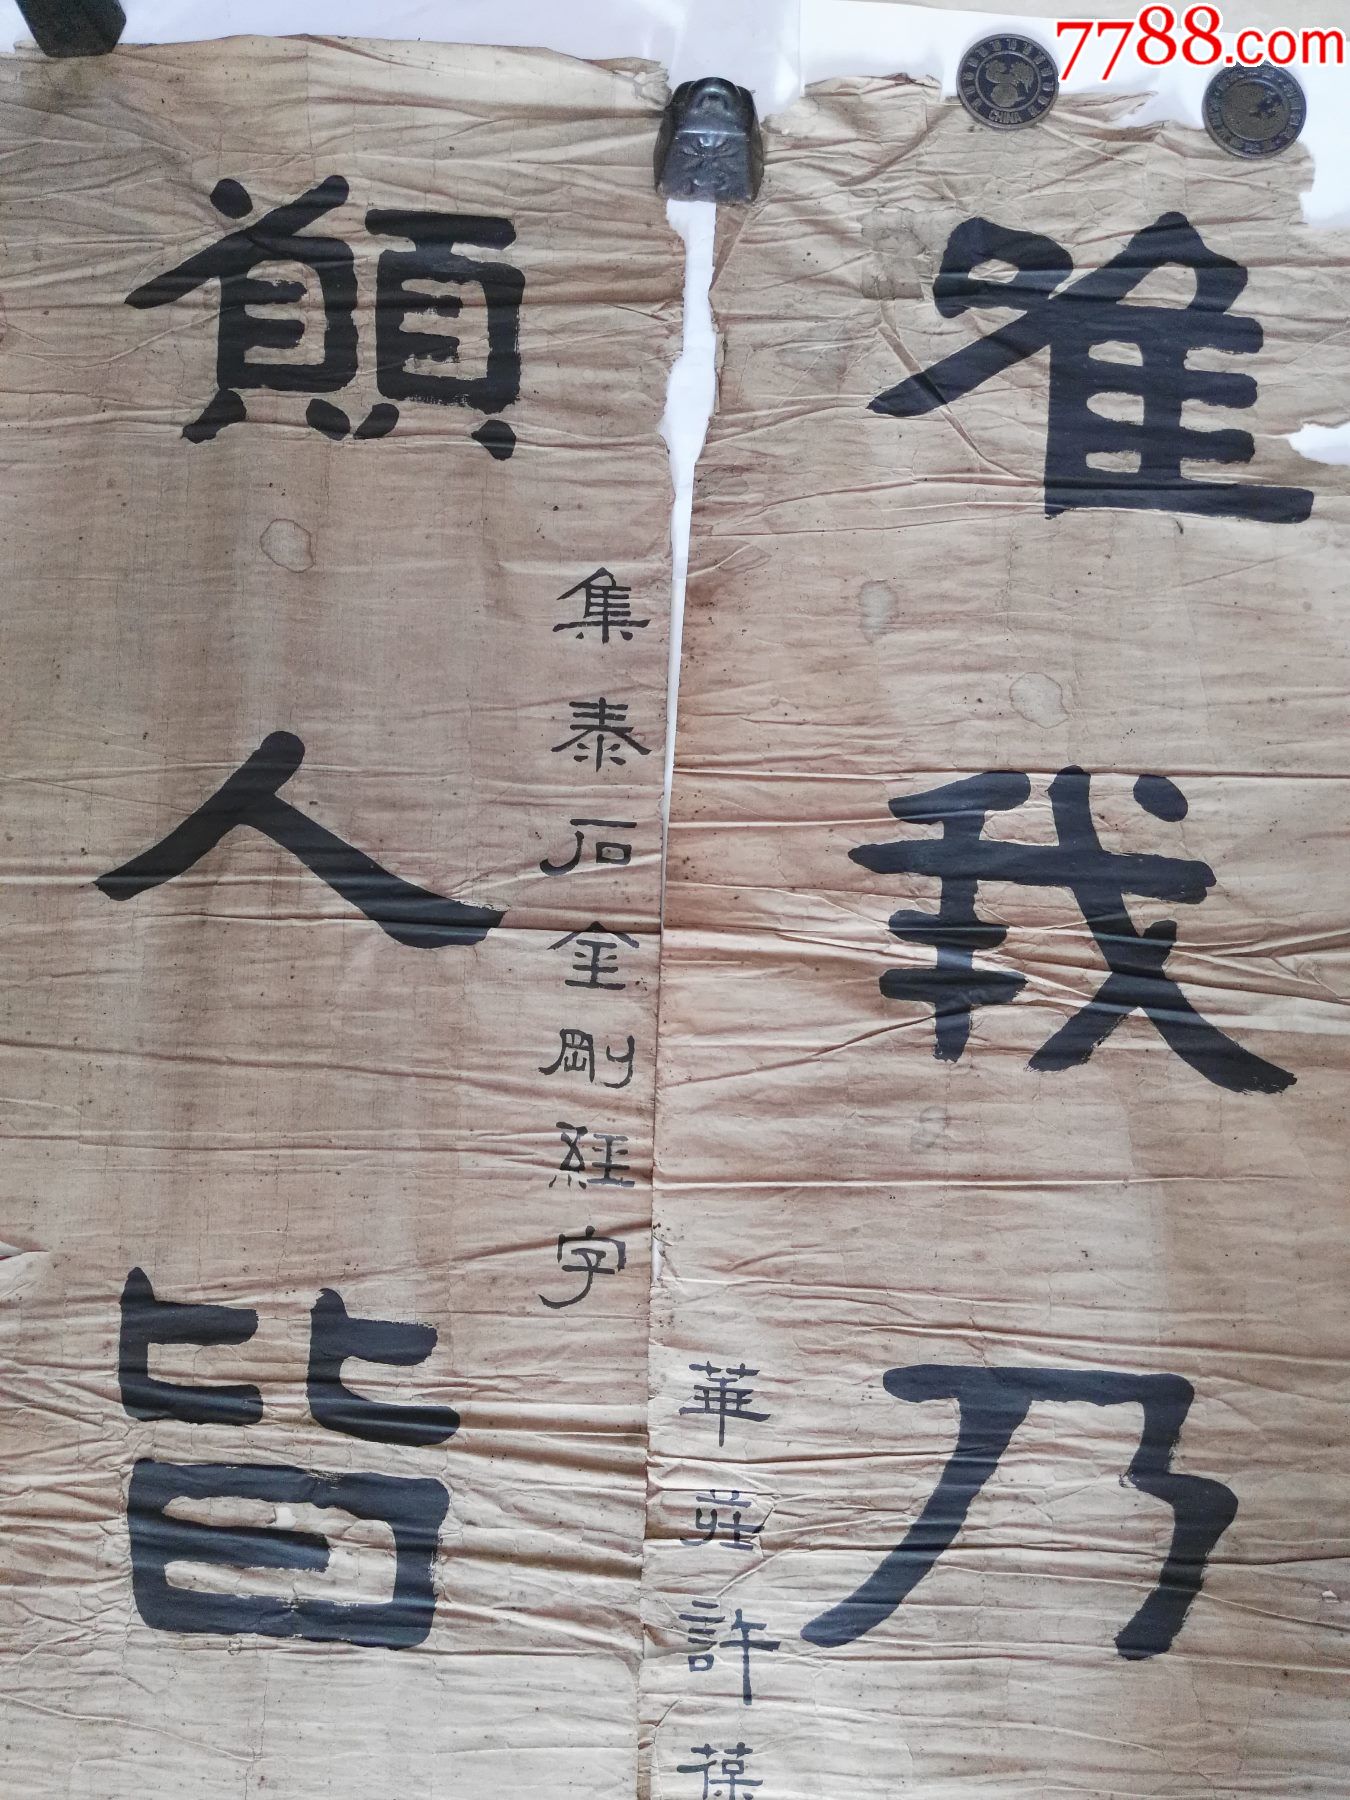 7788.com
CHINA
唯我乃
願人皆
集泰石金剛經字
華莊許葆